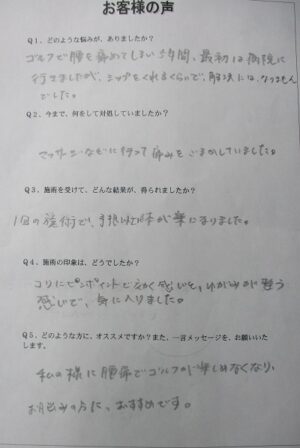 お客様の声
Q1、どのような悩みが、ありましたか？
ゴルフで腰を痛めてしまい5年間、最初は病院に
行きましたが、シップをくれるくらいで、解決にはなりません
でした。
Q2、今まで、何をして対処していましたか？
マッサージなどに行って痛みをごまかしていました。
Q3、施術を受けて、どんな結果が、得られましたか？
1回の施術で、手技は体が楽になりました。
Q4、施術の印象は、どうでしたか？
コリにピンポイントで効く感じと、ゆがみが整う
感じで、気に入りました。
Q5、どのような方に、オススメですか？また、一言メッセージを、お願いいた
します。
私の様に腰痛でゴルフが楽しめなくなり、
お悩みの方に、おすすめです。